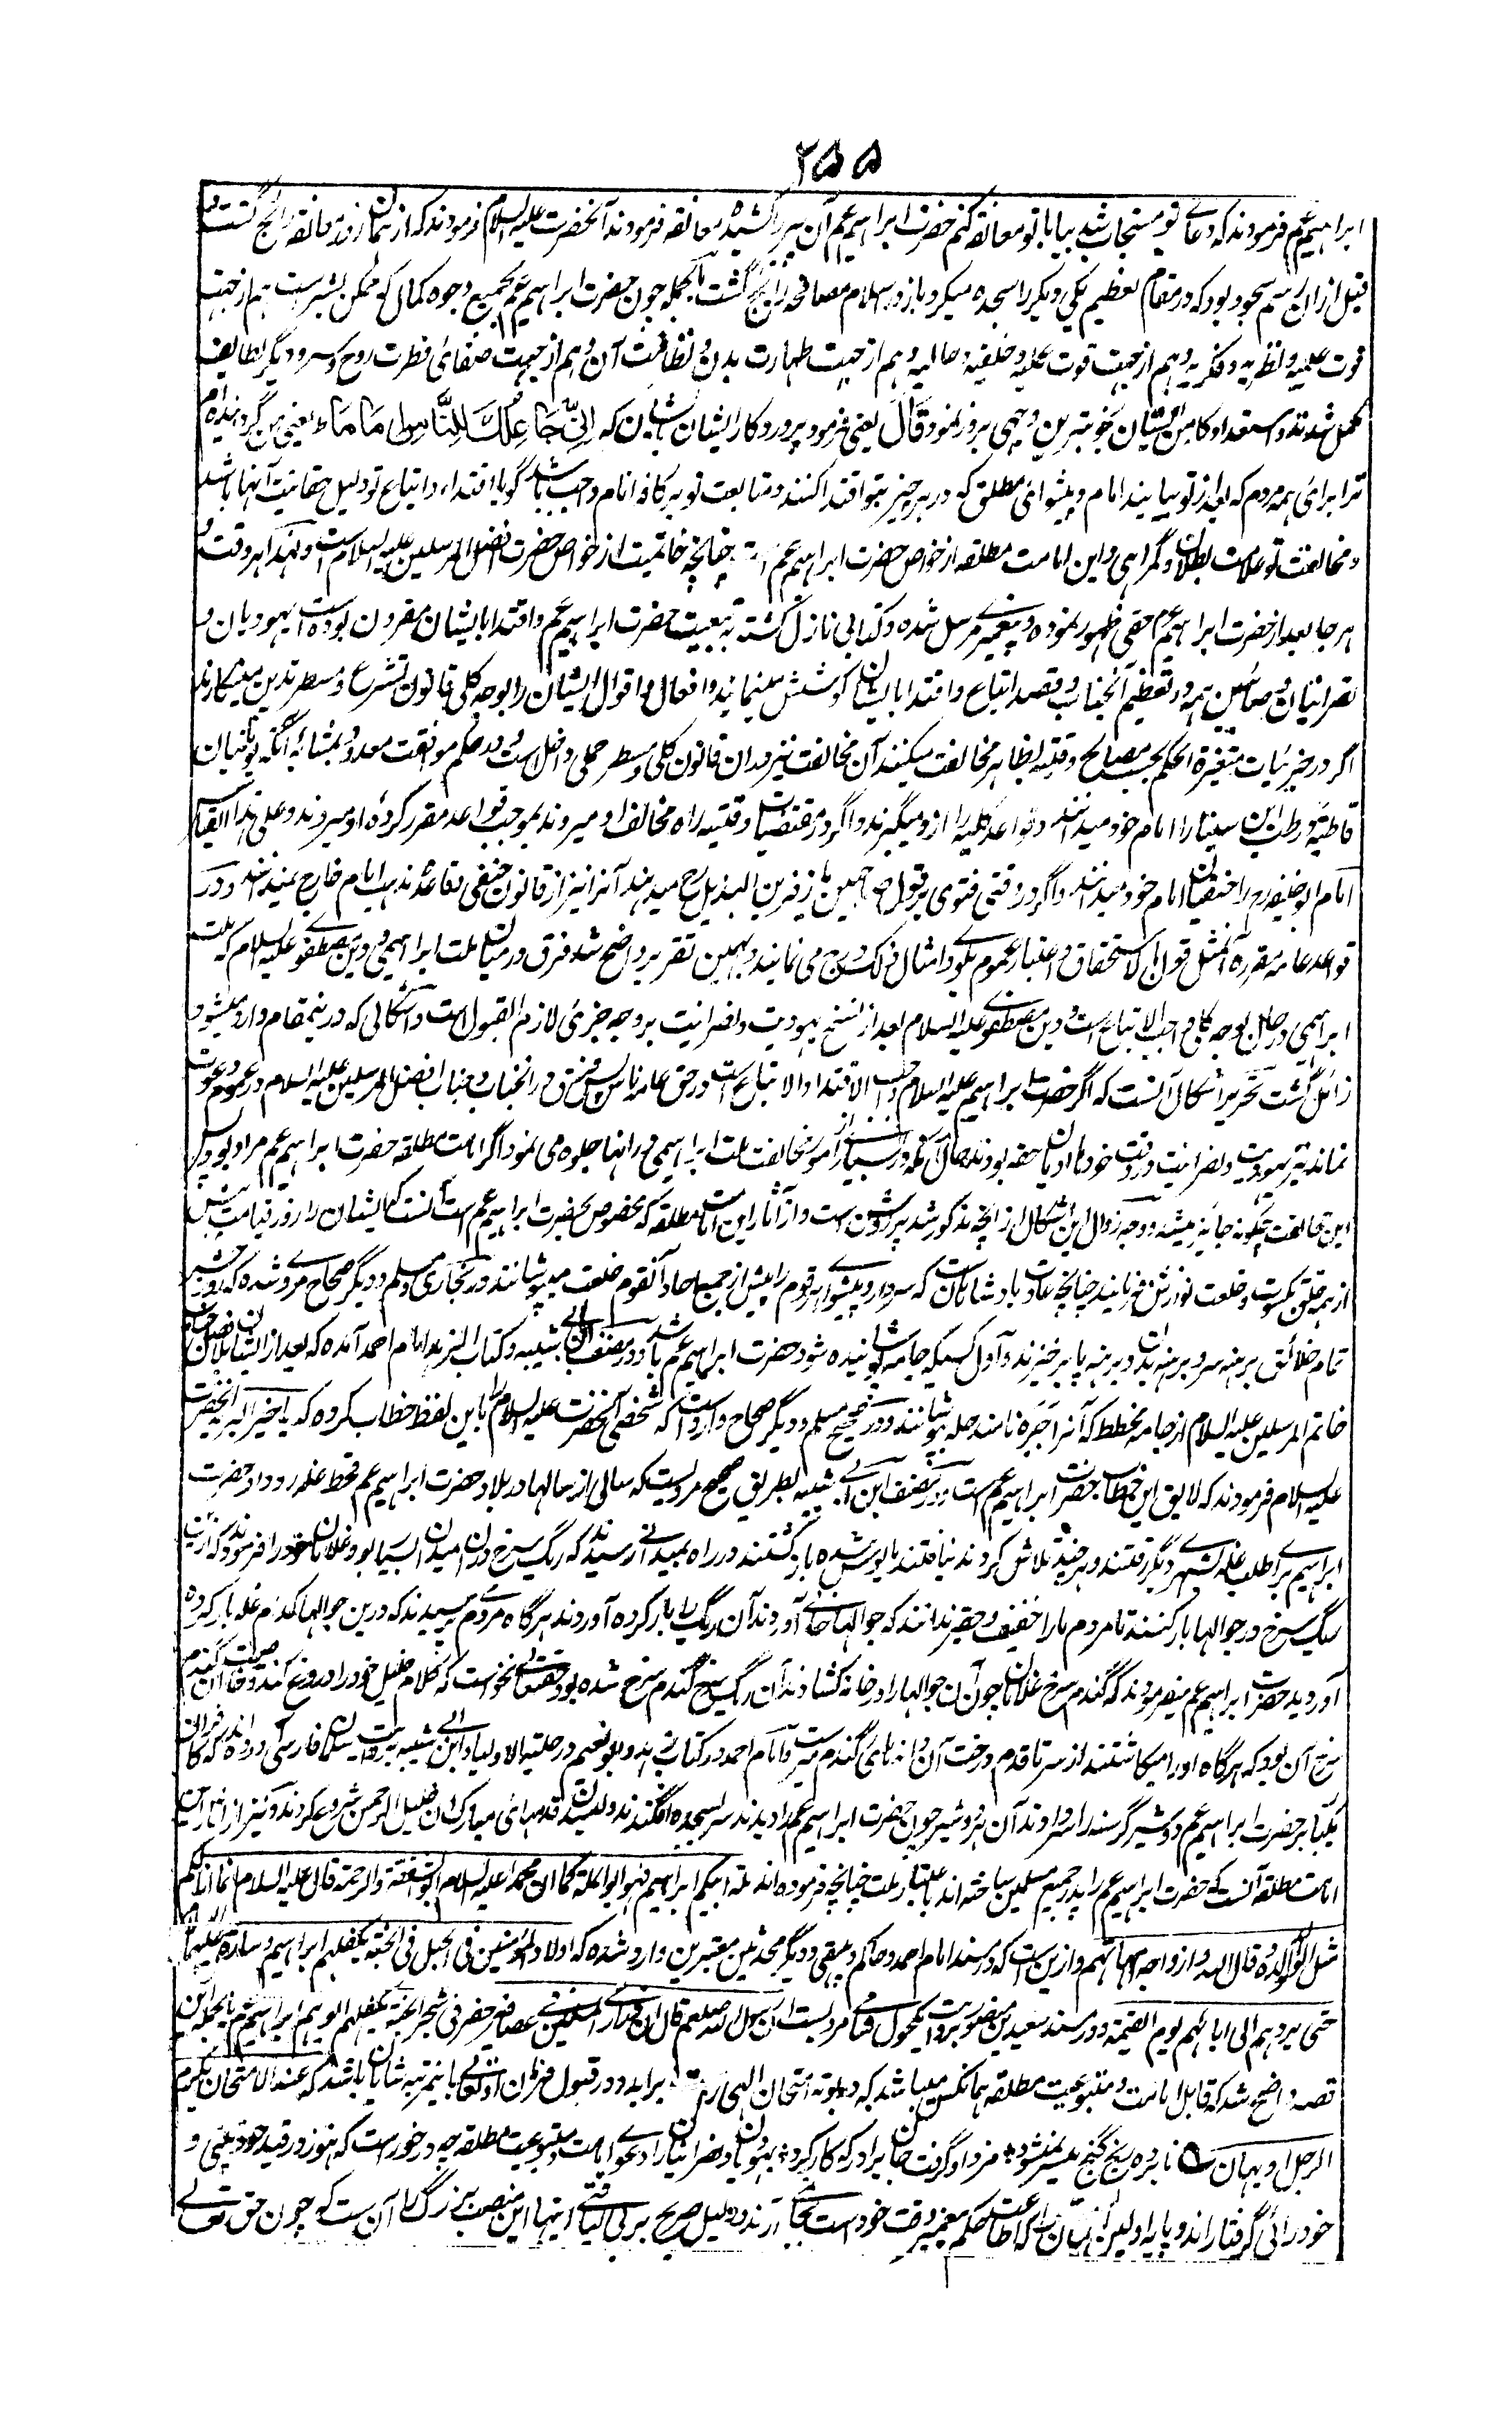 ۲۵۵
ابراهیم عم فرمودند که دعاے تو مستجاب شد بیا با تو معانقه کنم حضرت ابراهیم عم آن پیر را کشیده معانقه فرمودند آنحضرت علیه السلام فرمودند که از همان روز معانقه رائج گشت و
قبل ازان رسم سجود بود که در مقام تعظیم یکی دیگر را سجده میکرد باز در اسلام مصافحه رائج گشت بالجمله چون حضرت ابراهیم عم بجمیع وجوه کمال که ممکن بشر ست هم از جهت
قوت علمیه و نظریه و فکریه و هم از جهت قوت عملیه و خلقیه و حالیه و هم از جهت طهارت بدن و نظافت آن و هم از جهت صفائی فطرت روح و سر و دیگر لطایف
مکمل شدند و استعداد کامن ایشان بخوبترین وجهی بروز نمود قَالَ یعنی فرمود پروردگار ایشان بایشان که اِنِّی جَاعِلُكَ لِلنَّاسِ اِمَامًا یعنی من گرداننده ام
ترا برای همه مردم که بعد از تو بیایند امام و پیشوای مطلق که در هر چیز بتو اقتدا کنند و متابعت تو بر کافه انام واجب باشد گویا اقتداء و اتباع تو دلیل حقانیت آنها باشد
و مخالفت تو علامت بطلان و گمراهی و این امامت مطلقه از خواص حضرت ابراهیم عم است چنانچه خاتمیت از خواص حضرت افضل المرسلین علیه السلام است و لهذا هر وقت و
هر جا بعد از حضرت ابراهیم عم حقی ظهور نموده و پیغمبرے مرسل شده و کتابی نازل گشته به تبعیت حضرت ابراهیم عم و اقتدا بایشان مقرون بوده است یهودیان و
نصرانیان و صابئین همه در تعظیم آنجناب و قصد اتباع و اقتدا بایشان کوشش مینمایند و افعال و اقوال ایشان را بوجه کلی قانون تشرع و مسطر تدین می‌انگارند
اگر در جزئیات متغیرة الحکم بحسب مصالح وقتیه بظاهر مخالفت میکنند آن مخالفت نیز در آن قانون کلی و مسطر جملی داخل است و در حکم موافقت معدود بمثابه آنکه یونانیان
قاطبة در طب ابن سینا را امام خود میدانند و قواعد کلیه را ازو میگیرند و اگر در مقتضیات وقتیه راه مخالف او میروند بموجب قواعد مقرر کرده او میروند و علی هذا القیاس
امام ابو حنیفه رح را حنفیان امام خود میدانند و اگر در وقتی فتوی بر قول صاحبین یا زفر بن الهذیل رح میدهند آنرا نیز از قانون حنفی و قاعده مذهب امام خارج نمیدانند و در
قواعد عامه مقرره آنمثل قول بالاستحقاق و اعتبار عموم بلوی و امثال ذلك درج می نمایند و بهمین تقریر واضح شد فرق در میان ملت ابراهیمی و دین مصطفوے علیه السلام که ملت
ابراهیمی در حال بوجه کلی واجب الاتباع است و دین مصطفوے علیه السلام بعد از نسخ یهودیت و نصرانیت بر وجه جزئی لازم القبول است و اشکالی که درینمقام وارد میشود
زائل گشت تحریر اشکال آنست که اگر حضرت ابراهیم علیه السلام واجب الاقتدا و الاتباع است در حق عامه ناس پس فرق در آنجناب و جناب افضل المرسلین علیه السلام در عموم دعوت
نماند و نیز یهودیت و نصرانیت در وقت خودها ادیان حقه بودند حال آنکه در بسیارے از امور مخالفت ملت ابراهیمی در آنها جلوه می نمود اگر امامت مطلقه حضرت ابراهیم عم مراد بود پس
این مخالفت چگونه جایز میشد و وجه زوال این اشکال از آنچه مذکور شد پر روشن است و از آثار این امامت مطلقه که مخصوص بحضرت ابراهیم عم است آنست که ایشان را روز قیامت پیش
از همه خلق بکسوت و خلعت نوازش فرمایند چنانچه عادت بادشاهان است که سردار و پیشوای هر قوم را پیش از جمیع آحاد آنقوم خلعت می پوشانند در بخارے و مسلم و دیگر صحاح مروے شده که روز حشر
تمام خلائق برهنه سر و برهنه بدن و برهنه پا بر خیزند و اول کسیکه جامه پوشانیده شود حضرت ابراهیم عم باشد و در مصنف ابن ابی شیبه و کتاب الزهد امام احمد آمده که بعد از ایشان
خاتم المرسلین علیه السلام از جامه مخطط که آنرا حبره نامند حله بپوشانند و در صحیح مسلم و دیگر صحاح وارد است که شخصی آنحضرت علیه السلام را باین لفظ خطاب کرده که یا خیر البریه آنحضرت
علیه السلام فرمودند که لایق این خطاب حضرت ابراهیم عم است و در مصنف ابن ابے شیبه بطریق صحیح مرویست که سالی از سالها در بلاد حضرت ابراهیم عم قحط غله رو داد حضرت
ابراهیم براے طلب غله بشهرے دیگر رفتند و هر چند تلاش کردند نیافتند مایوس شده بازگشتند در راه بمیدانے رسیدند که ریگ سرخ دران میدان بسیار بود غلامان خود را فرمودند که ازین
ریگ سرخ در جوالها بار کنند تا مردم ما را خفیف و حقیر ندانند که جوالها خالی آوردند آن ریگ را بار کرده آوردند هر گاه مردم پرسیدند که درین جوالها کدام غله بار کرده
آوردید حضرت ابراهیم عم میفرمودند که گندم سرخ غلامان چون آن جوالها را در خانه کشادند آن ریگ سرخ گندم سرخ شده بود حقتعالی نخواست که کلام خلیل خود را دروغ کند و خاصیت آن گندم
سرخ آن بود که هر گاه او را میکاشتند از سر تا قدم درخت آن دانهای گندم میرست و امام احمد در کتاب الزهد و ابو نعیم در حلیة الاولیا و ابن ابی شیبه بروایت سلمان فارسی آورده اند که کافران
یکبار بر حضرت ابراهیم عم دو شیر گرسنه را سر دادند آن هر دو شیر چون حضرت ابراهیم عم را دیدند سر بسجده افگندند و لیسیدن قدمهای مبارک ان خلیل الرحمن شروع کردند و نیز از آثار این
امامت مطلقه آنست که حضرت ابراهیم عم را پدر جمیع مسلمین ساخته اند باعتبار ملت چنانچه فرموده اند ملة ابیکم ابراهیم فهو ابو الملة کما ان محمدا علیه السلام ابو الشفقة و الرحمة قال علیه السلام انما انا لکم
مثل الوالد لولده و قال الله و ازواجه امهاتهم و ازین ست که در مسند امام احمد و حاکم و بیهقی و دیگر محدثین معتبرین وارد شده که اولاد المؤمنین فی جبل فی الجنة یکفلهم ابراهیم و ساره علیهما السلام
حتی یردهم الی ابائهم یوم القیمة و در مسند سعید بن منصور بروایت مکحول شامی مرویست ان رسول الله صلعم قال ان ذرارے المسلمین فی عصافیر خضر فی شجر الجنة یکفلهم ابوهم ابراهیم عم بالجمله ازین
قصه واضح شد که قابل امامت و متبوعیت مطلقه همانکس میباشد که در بوته امتحان الهی راست برآید و در قبول فرمان او تعالی باینمرتبه شایان باشد که عند الامتحان یکرم
الرجل او یهان ؎ نا برده رنج گنج میسر نمیشود * مزد او گرفت جان برادر که کار کرد * یهودیان و نصرانیان را دعوے امامت و متبوعیت مطلقه چه در خورست که هنوز در قید خود بینی و
خود رائی گرفتار اند و پایه اولین ایمان را که اطاعت حکم پیغمبر وقت خود است بجا نمی آرند و دلیل صریح بر بی لیاقتی اینها این منصب بزرگ را آن ست که چون حق تعالے